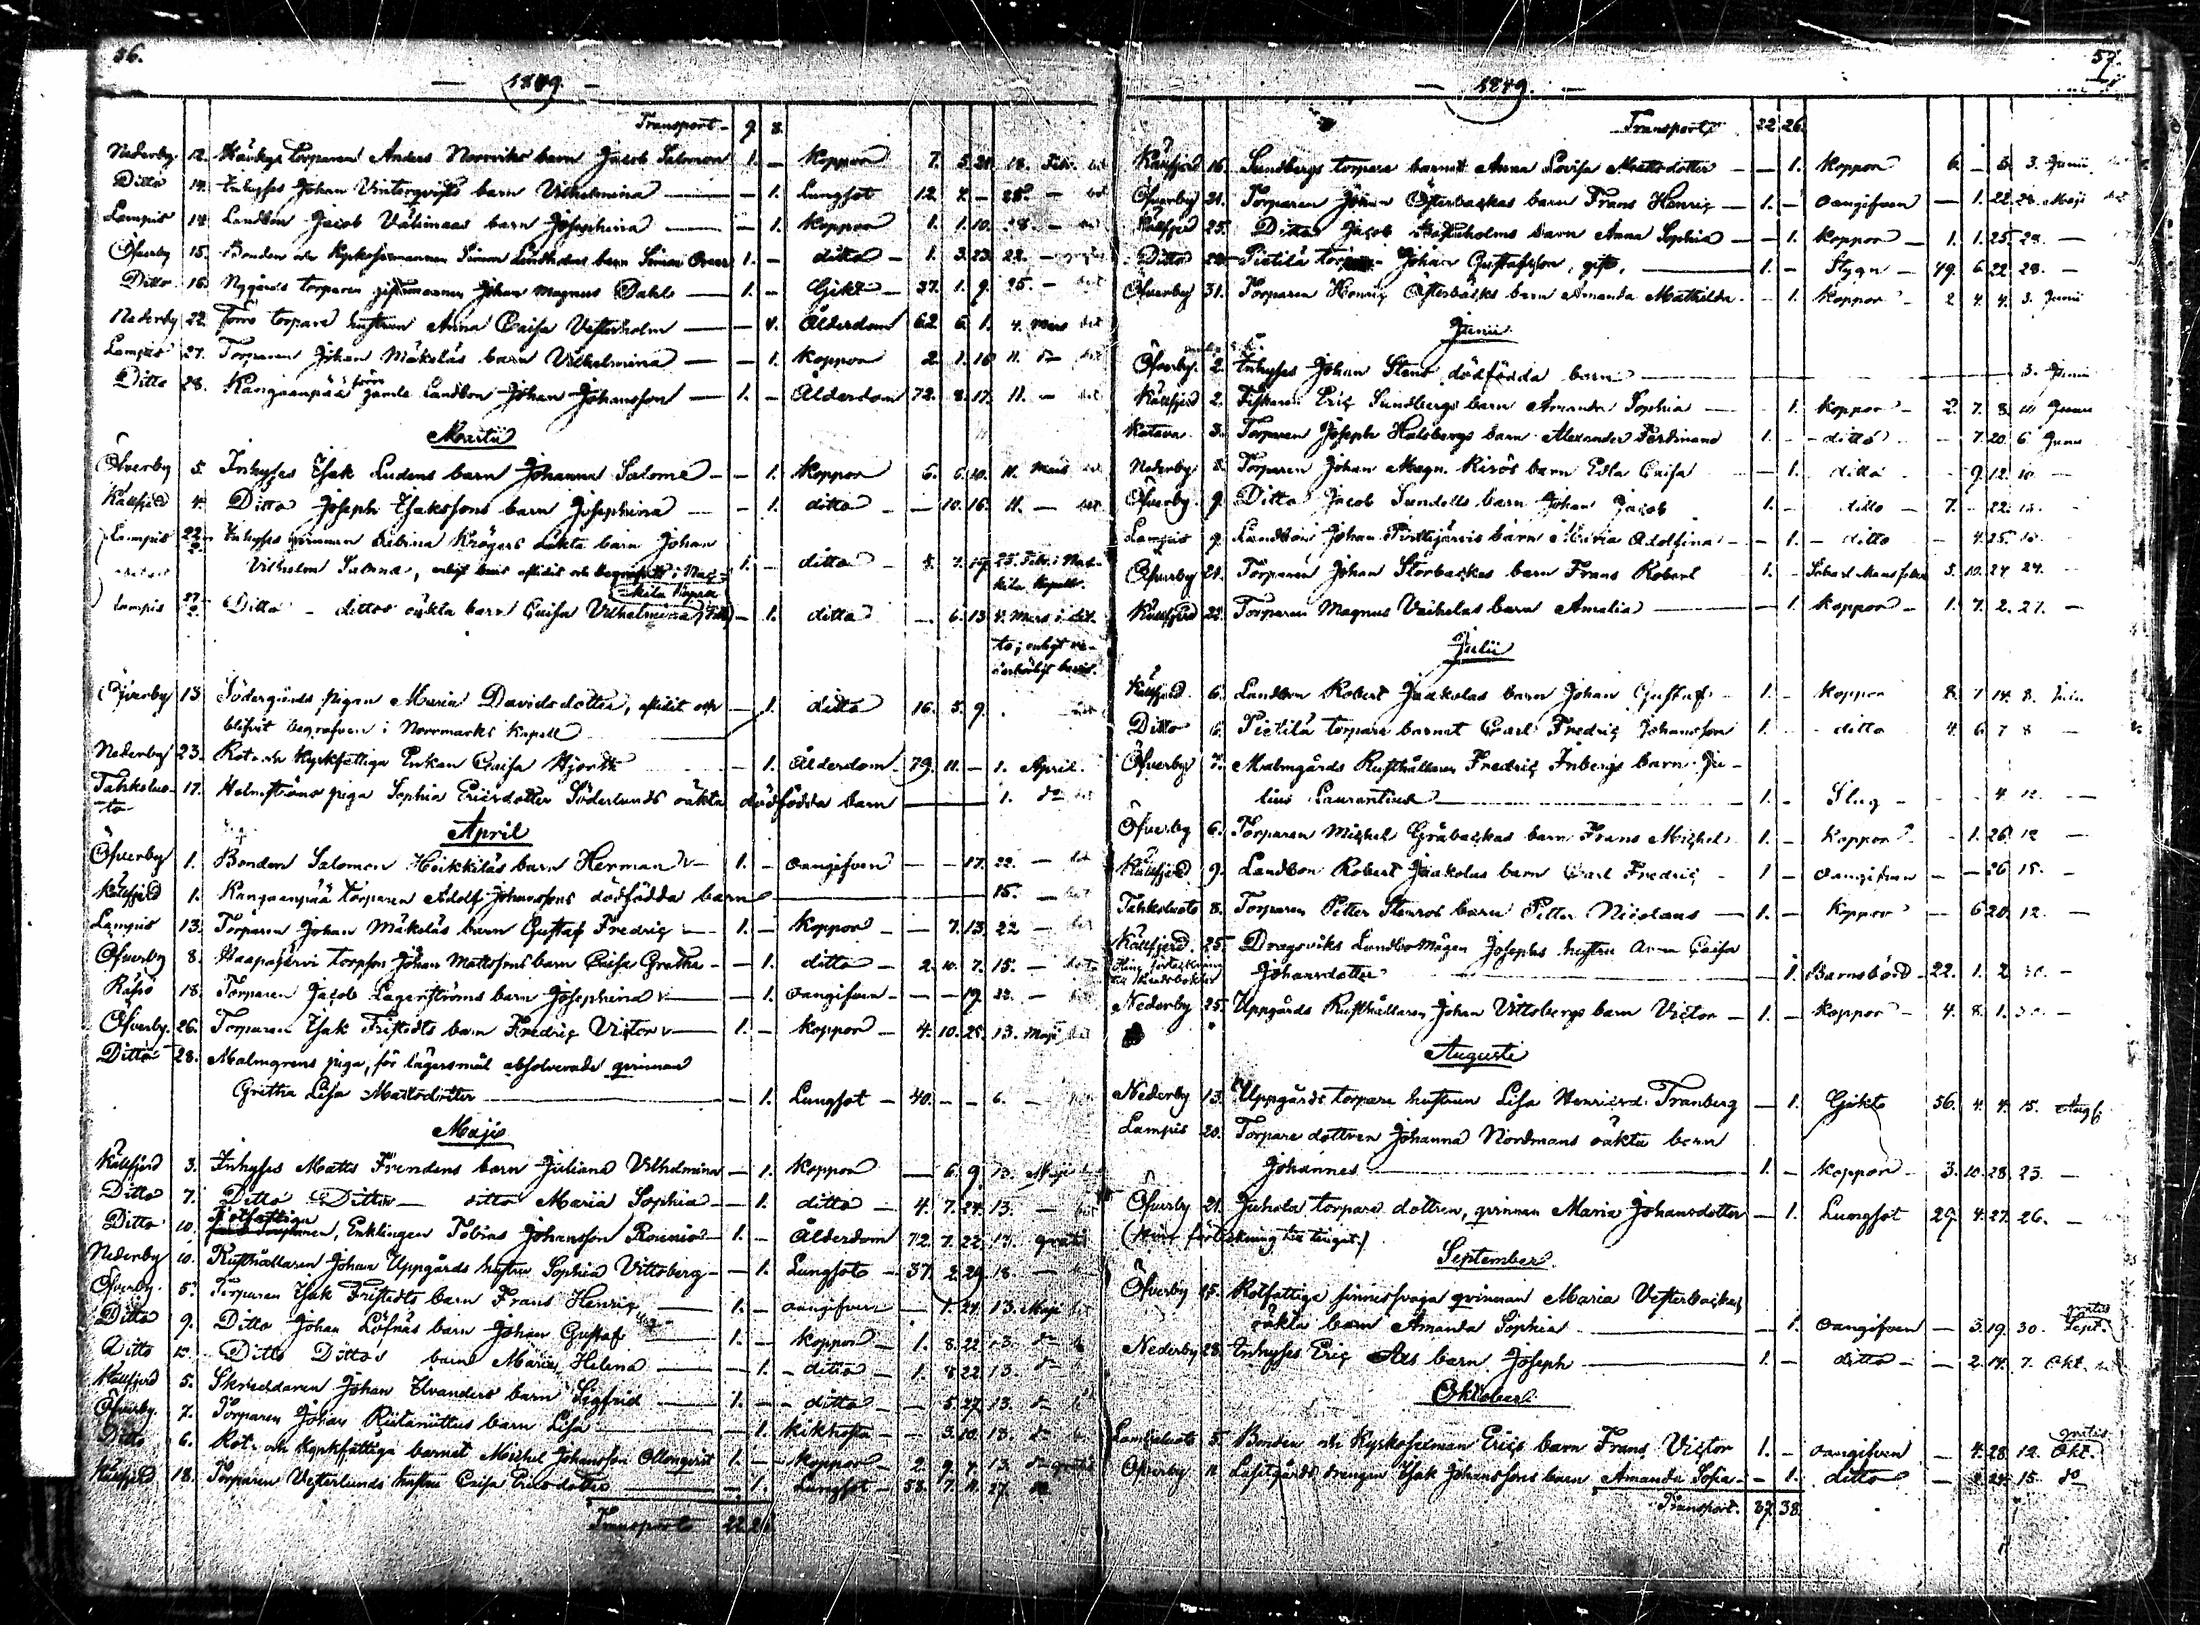 56.
1849.
Transport 9. 8.
Nederby 12. torparen Anders Norrviks barn Jacob Salomon 1. – Koppor 7. 5. 21. 18. Febr.
Ditto 14. Inhyses Johan Vinterqvists barn Vilhelmina – 1. Lungsot 12. 7. – 25. –
Lampis 14. Landbon Jacob Välimaas barn Josephina – 1. Koppor 1. 1. 10. 18. –
Öfverby 15. Bonden och Kyrkoförmannen Simon Lindholms barn Simon 1. – ditto 1. 3. 23. 22. –
Ditto 16. Nygårds torparen Johan Magnus Dahl 1. – Gikt 37. 1. 9. 25. –
Nederby 22. Torrö torpare hustrun Anna Caisa Vesterholm – 1. Ålderdom 62. 6. 1. 4. Mars
Lampis 27. Torparen Johan Mäkeläs barn Vilhelmina – 1. Koppor 2. 1. 16. 11. do
Ditto 28. Kangaanpää förre gamle Landbon Johan Johansson 1. – Ålderdom 72. 8. 17. 11. –
Martii
Öfverby 5. Inhyses Isak Ludens barn Johanna Salome – 1. Koppor 6. 6. 10. 11. Mars
Källfjerd 4. Ditto Joseph Isakssons barn Josephina – 1. ditto – 10. 16. 11. –
Lampis 22/2. Inhyses qvinnan Sabina Krögers oäkta barn Johan
Vilhelm Sabina, enligt bevis aflidit och begrafvits i 1. – ditto 4. 7. 19. 25. Febr. i
Kapell
Lampis 27/2. Ditto – dittos oäkta barn Caisa Vilhelmina – 1. ditto – 6. 13. 4. Mars i dit-
to, enligt
bevis.
Öfverby 13. Södergårds pigan Maria Davidsdotter, aflidit och – 1. ditto 16. 5. 9.
blifvit begrafven i Norrmarks Kapell
Nederby 23. Rot- och Kyrkfattiga Enkan Caisa Hjorth – 1. Ålderdom 79. 11. – 1. April.
Tahkoluo-
to 17. Holmströms piga Sophia Ericsdotter Söderlunds oäkta dödfödda barn – 1. do
April
Öfverby 1. Bonden Salomon Heikkiläs barn Herman 1. – oangifven – – 17. 22. –
Källfjerd 1. Kangaanpää torparen Adolf Johanssons dödfödda barn 15. –
Lampis 13. Torparen Johan Mäkeläs barn Gustaf Fredric 1. – Koppor – 7. 13. 22 –
Öfverby 8. Haapajärvi torpson Johan Mattssons barn Caisa Gretha – 1. ditto 2. 10. 7. 15. –
Räfsö 18. Torparen Jacob Lagerströms barn Josephina – 1. oangifven – – 19. 22. –
Öfverby 26. Torparen Isak Fristedts barn Fredric Victor 1. – Koppor 4. 10. 25. 13. Maji
Ditto 28. Malmgrens piga, för lägersmål absolverade qvinnan
Gretha Lisa Mattsdotter – 1. Lungsot 40. – – 6. –
Maji
Källfjerd 3. Inhyses Matts Frendens barn Juliana Vilhelmina – 1. Koppor – 6. 9. 13. Maji
Ditto 7. Ditto Dittos ditto Maria Sophia – 1. ditto 4. 7. 24. 13. –
Ditto 10. Rotfattiga, Enklingen Tobias Johansson Rounio 1. – Ålderdom 72. 7. 22. 13. gratis
Nederby 10. Rusthållaren Johan Uppgårds hustru Sophia Vittoberg – 1. Lungsot 37. 2. 29. 18 –
Öfverby 5. Torparen Isak Fristedts barn Frans Henric 1. – oangifven – 1. 21. 13. Maji
Ditto 9. Ditto Johan Löfnäs barn Johan Gustaf 1. – Koppor 1. 8. 22. 13. do
Ditto 12. Ditto Dittos barn Maria Helena – 1. ditto 1. 8 22 13. do
Källfjerd 5. Skräddaren Johan Ivanders barn Sigfrid 1. – ditto – 5. 27. 13. do
Öfverby 7. Torparen Johan Riutaniittus barn Lisa – 1. Kikhosta – 3. 10. 18. do
Ditto 6. Rot- och Kyrkfattiga barnet Michel Johansson Ollonqvist 1. – Koppor 2. 9. 7. 13. do gratis
Källfjerd 18. Torparen Vesterlunds hustru Caisa Ericsdotter – 1. Lungsot 58. 7. 11. 27. do
Transport 22. 26.
57.
1849.
Transport 22. 26.
Källfjerd 16. Sundbergs torpare barnet Anna Lovisa Mattsdotter – 1. Koppor 6. – 6. 3. Junii
Öfverby 21. Torparen Johan Österbackas barn Frans Henric 1. – oangifven – 1. 22. 28. Maji
Källfjerd 25. Ditto Jacob barn Anna Sophia – 1. Koppor 1. 1. 25. 28. –
Ditto 22. Pietilä torpare Johan Gustafsson, gift, 1. – Stygn 49. 6. 22. 28. –
Öfverby 31. Torparen Henric Österbacks barn Amanda Mathilda – 1. Koppor 2. 4. 4. 3. Junii
Junii
Öfverby 2. Inhyses Johan Stens dödfödda barn 3. Junii
Källfjerd 2. Fiskaren Eric Sundbergs barn Amanda Sophia – 1. Koppor 2. 7. 8. 10. Junii
Katava 3. Torparen Joseph Holsbergs barn Alexander Ferdinand 1. – ditto – 7. 20. 6. Junii
Nederby 8. Torparen Johan Magn. Risös barn Edla Caisa – 1. ditto – 9. 12. 10. –
Öfverby 9. Ditto Jacob Sundells barn Johan Jacob 1. – ditto 7. – 22. 10. –
Lampis 9. Landbon Johan Pirttijärvis barn Maria Adolfina – 1. ditto – 4. 25. 10. –
Öfverby 21. Torparen Johan Storbackas barn Frans Robert 1. – 3. 10. 24. 24. –
Källfjerd 22. Torparen Magnus Vaihelas barn Amalia – 1. Koppor 1. 7. 2. 27. –
Julii
Källfjerd 6. Landbon Robert Jaakolas barn Johan Gustaf 1. – Koppor 8. 7. 14. 8. Julii
Ditto 6. Pietilä torpare barnet Carl Fredric Johansson 1. – ditto 4. 6. 7. 8 –
Öfverby 7. Malmgårds Rusthållaren Fredric Inbergs barn Ju-
lius Laurentius 1. – Slag – – 4. 12. –
Öfverby 6. Torparen Michel Gråbackas barn Frans Michel 1. – Koppor – 1. 26. 12 –
Källfjerd 9. Landbon Robert Jaakolas barn Carl Fredric 1 – oangifven – – 26 15. –
Tahkoluoto 8. Torparen Petter Stenros barn Petter Nicolaus 1. – Koppor – 6 20. 12. –
Källfjerd 25. Dragsviks Landbo Mågen Josephs hustru Anna Caisa
Johansdotter – 1. Barnsbörd 22. 1. 2. 30. –
Nederby 25. Uppgårds Rusthållaren Johan Vittobergs barn Victor 1. – Koppor 4. 8. 1. 30. –
Augusti
Nederby 13. Uppgårds torpare hustrun Lisa Henricsd. Tranberg – 1. Gikt 56. 4. 4. 15. Aug.
Lampis 20. Torpare dottren Johanna Nordmans oäkta barn
Johannes 1. – Koppor 3. 10. 28. 23. –
Öfverby 21. Juhola torpare dottren, qvinnan Maria Johansdotter – 1. Lungsot 29. 4. 27. 26. –
September
Öfverby 15. Rotfattiga sinnessvaga qvinnan Maria Vesterbackas
oäkta barn Amanda Sophia – 1. oangifven – 3. 19. 30. gratis Sept.
Nederby 28. Inhyses Eric Ass barn Joseph 1. – ditto – 2. 17. 7. Okt.
Oktober
5. Bonden och Kyrkoförman Erics barn Frans Victor 1. – oangifven – 4. 28. 12. gratis Okt.
Öfverby 11. drengen Isak Johanssons barn Amanda Sofia – 1. ditto – 2. 24. 15. do
Transport. 37. 38.